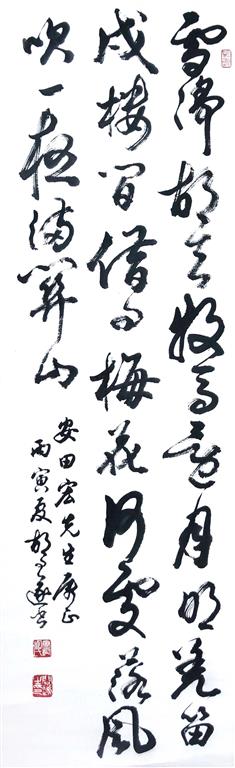 雪淨胡天牧馬還月明羌笛
戍樓間借問梅花何處落風
吹一夜滿關山
安田宏先生屬正
丙寅夏胡問遂書